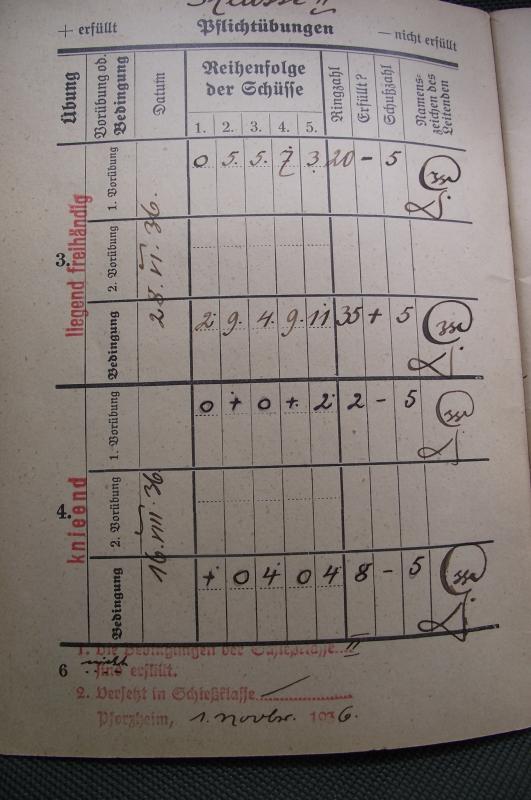 Klasse II
+ erfüllt Pflichtübungen — nicht erfüllt
Übung
Vorübung od. Bedingung
Datum
Reihenfolge der Schüsse
1. 2. 3. 4. 5.
Ringzahl
Erfüllt?
Schußzahl
Namenszeichen des Leitenden
3. liegend freihändig
28.VI.36.
1. Vorübung 0 5. 5. 7 3 20 - 5
2. Vorübung
Bedingung 2 9. 4. 9. 11 35 + 5
4. knieend
16.VIII.36
1. Vorübung 0 + 0 + 2 2 - 5
2. Vorübung
Bedingung + 0 4 0 4 8 - 5
1. Die Bedingungen der Schießklasse II
nicht
sind erfüllt.
2. Versetzt in Schießklasse
Pforzheim, 1. Novbr. 1936.
6